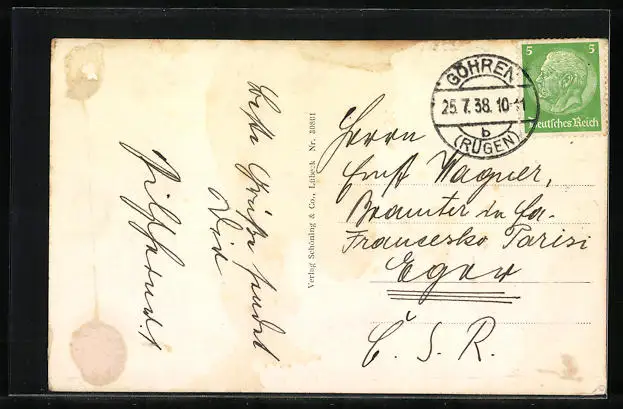 Beste Grüße sendet
Dir
Verlag Schöning & Co., Lübeck Nr. 30801
GÖHREN
25.7.38.10-11
b
(RÜGEN)
5 5
Deutsches Reich
Herrn
Ernst Wagner,
Beamter in Fa.
Francesko Parisi
Eger
Č. S. R.